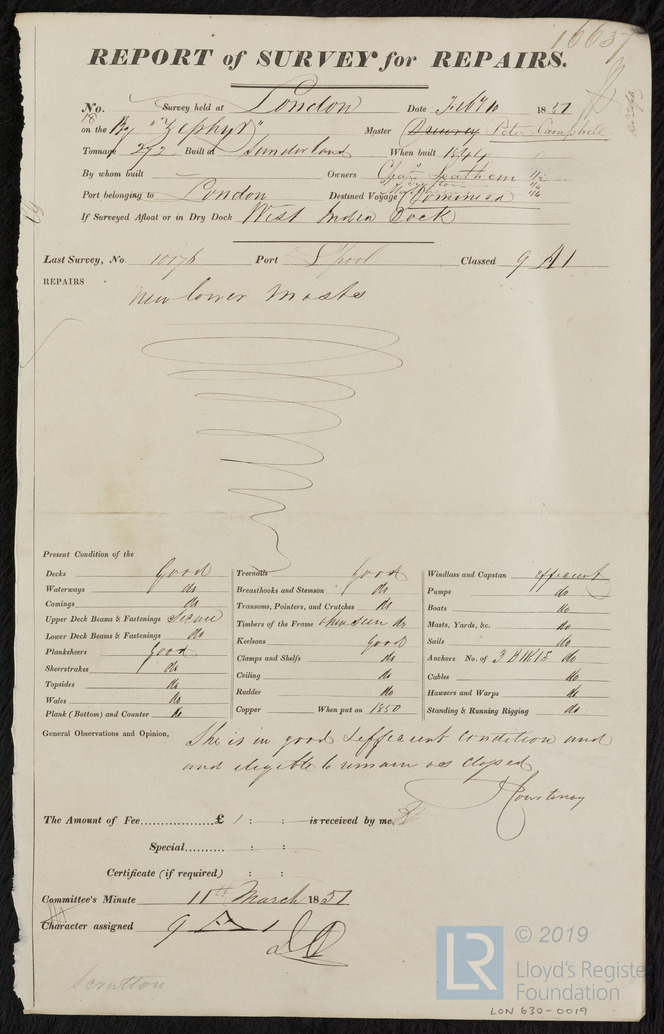 16637
REPORT of SURVEY for REPAIRS.
No. Survey held at London Date Feby 10 1851
18
on the Bg "Zephyr" Master Drewrey Peter Campbell
Tonnage 292 Built at Sunderland When built 1844
By whom built Owners Chas Leathem
Port belonging to London Destined Voyage Dominica
If Surveyed Afloat or in Dry Dock West India Dock
Last Survey, No 10176 Port Lpool Classed 9 A 1
REPAIRS New lower masts
Present Condition of the
Decks Good Treenails Good Windlass and Capstan efficient
Waterways do Breasthooks and Stemson do Pumps do
Comings do Transoms, Pointers, and Crutches do Boats do
Upper Deck Beams & Fastenings Secure Timbers of the Frame when seen do Masts, Yards, &c. do
Lower Deck Beams & Fastenings do Keelsons Good Sails do
Planksheers Good Clamps and Shelfs do Anchors No. of 3 B 1 K 1 S do
Sheerstrakes do Ceiling do Cables do
Topsides do Rudder do Hausers and Warps do
Wales do Copper When put on 1850 Standing & Running Rigging do
Plank (Bottom) and Counter do
General Observations and Opinion, She is in good & efficient Condition and
and eligible to remain as classed
J Courtenay
The Amount of Fee £ 1 : : is received by me,
Special : :
Certificate (if required) : :
Committee's Minute 11th March 1851
Character assigned 9 A 1
Scrutton
LR © 2019
Lloyd's Register
Foundation
LON 630-0019